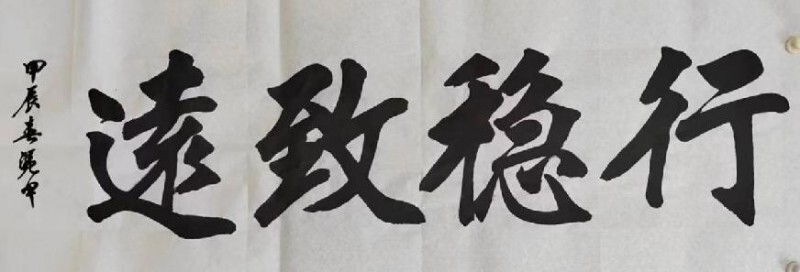 行稳致遠
甲辰春